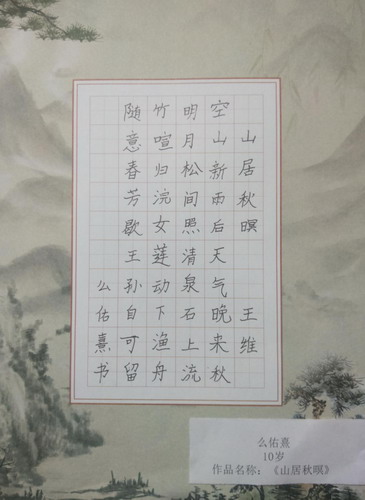 山居秋暝 王维
空山新雨后天气晚来秋
明月松间照清泉石上流
竹喧归浣女莲动下渔舟
随意春芳歇王孙自可留
么佑熹书
么佑熹
10岁
作品名称：《山居秋暝》